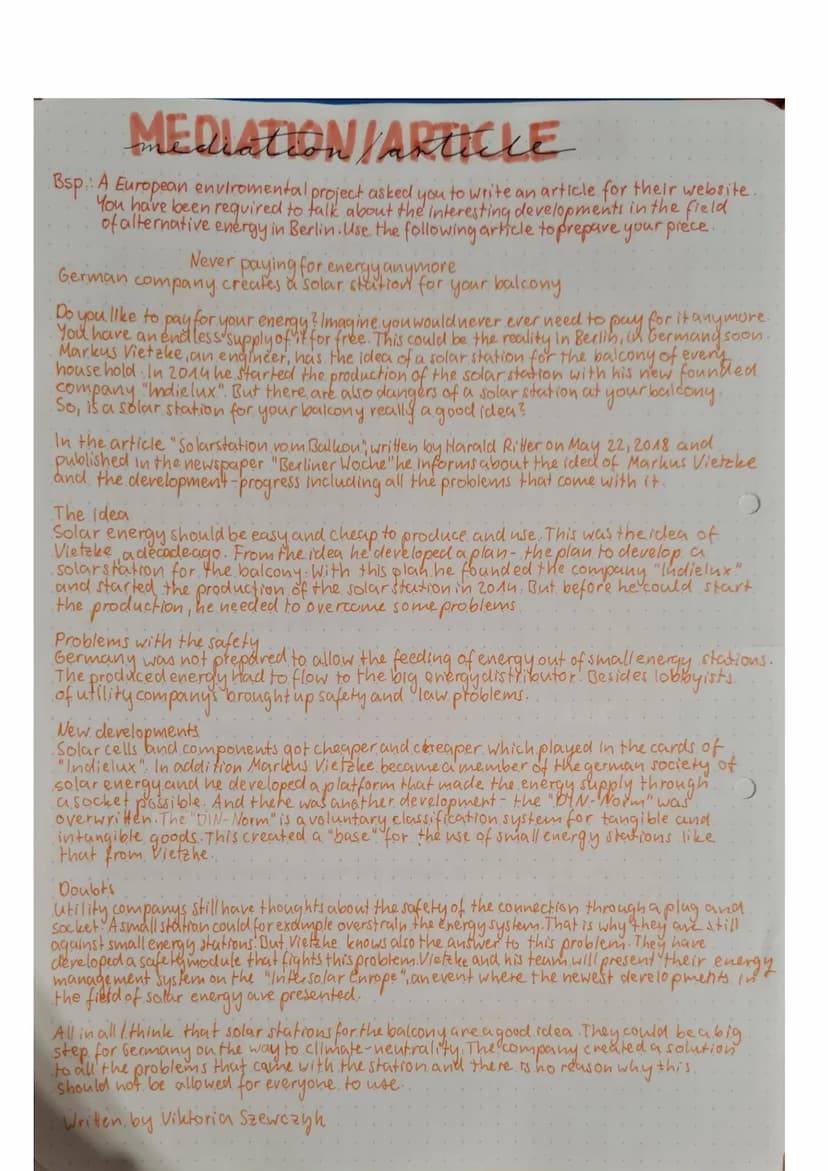 MEDIATION/ARTICLE
mediation/article
Bsp.: A European enviromental project asked you to write an article for their website.
You have been required to talk about the interesting developments in the field
of alternative energy in Berlin. Use the following article to prepare your piece.
Never paying for energy anymore
German company creates a solar station for your balcony
Do you like to pay for your energy? Imagine you would never ever need to pay for it anymore.
You have an endless supply of it for free. This could be the reality in Berlin, in Germany soon.
Markus Vietzke, an engineer, has the idea of a solar station for the balcony of every
household. In 2014 he started the production of the solar station with his new founded
company "Indielux". But there are also dangers of a solar station at your balcony.
So, is a solar station for your balcony really a good idea?
In the article "Solarstation vom Balkon", written by Harald Ritter on May 22, 2018 and
published in the newspaper "Berliner Woche" he informs about the idea of Markus Vietzke
and the development-progress including all the problems that come with it.
The Idea
Solar energy should be easy and cheap to produce and use. This was the idea of
Vietzke, a decade ago. From the idea he developed a plan - the plan to develop a
solar station for the balcony. With this plan he founded the company "Indielux"
and started the production of the solar station in 2014. But before he could start
the production, he needed to overcome some problems.
Problems with the safety
Germany was not prepared to allow the feeding of energy out of small energy stations.
The produced energy had to flow to the big energy distributor. Besides lobbyists
of utility companys brought up safety and law problems.
New developments
Solar cells and components got cheaper and cheaper which played in the cards of
"Indielux". In addition Markus Vietzke became a member of the german society of
solar energy and he developed a platform that made the energy supply through
a socket possible. And there was another development - the "DIN-Norm" was
overwritten. The "DIN-Norm" is a voluntary classification system for tangible and
intangible goods. This created a "base" for the use of small energy stations like
that from Vietzke.
Doubts
Utility companys still have thoughts about the safety of the connection through a plug and
socket. A small station could for example overstrain the energy system. That is why they are still
against small energy stations. But Vietzke knows also the answer to this problem. They have
developed a safety module that fights this problem. Vietzke and his team will present their energy
management system on the "Intersolar Europe", an event where the newest developments in
the field of solar energy are presented.
All in all I think that solar stations for the balcony are a good idea. They could be a big
step for Germany on the way to climate-neutrality. The company created a solution
to all the problems that came with the station and there is no reason why this
should not be allowed for everyone to use.
Written by Viktoria Szewczyk